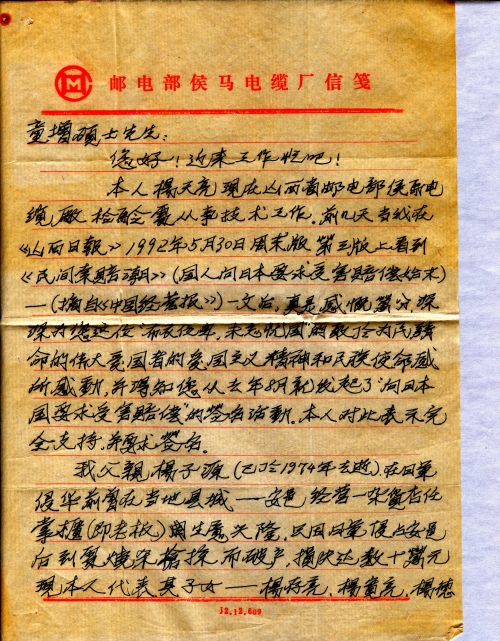 邮电部侯马电缆厂信笺
童增硕士先生:
您好!近来工作忙吧!
本人楊天亮现在山西省邮电部侯马电
缆廠检配会 从事技术工作。前几天当我在
《山西日報》1992年5月30日周末版第三版上看到
《民间索賠 》(国人向日本要求受害賠償始末)
—(摘自《中国经营报》)一文后,真是感慨萬分,深
深为您这位 ,未忘忧国的敢于为民請
命的偉大爱国者的爱国主义精神和民族使命感
所感動,并得知您从去年8月就发起了"向日本
国要求受害賠償"的签名活動。本人对此表示完
全支持,并要求签名。
我父親楊子源(已於1974年去逝)在日軍
侵华前曾在当地县城—安邑 经营一杂貨店任
掌櫃(即老板)興生意兴隆,后因日軍侵占安邑
后到處燒杀槍掠,而破产,損失达数十萬元
现本人代表其子女—楊好亮、楊賀亮、楊德
J2.12.609